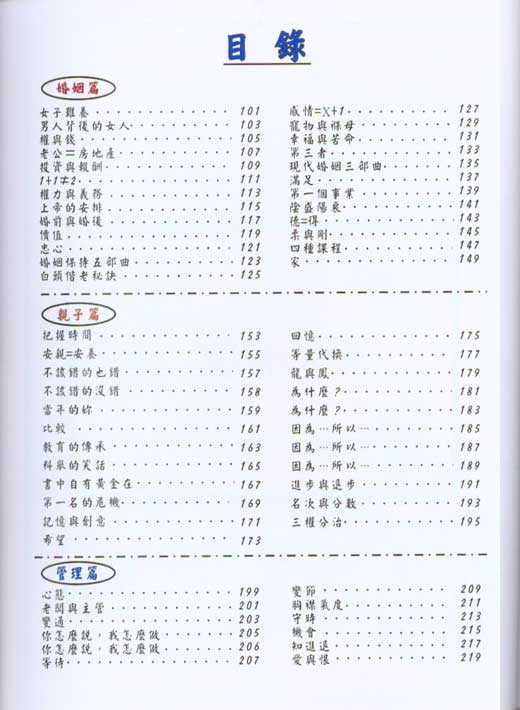 目 錄
婚姻篇
女子難養 101
男人背後的女人 103
權與錢 105
老公＝房地產 107
投資與報酬 109
1+1≠2 111
權力與義務 113
上帝的安排 115
婚前與婚後 117
價值 119
忠心 121
婚姻保持五部曲 123
白頭偕老秘訣 125
感情=X+1 127
寵物與褓母 129
幸福與苦命 131
第三者 133
現代婚姻三部曲 135
滿足 137
第一個事業 139
陰盛陽衰 141
德=得 143
柔與剛 145
四種課程 147
家 149
親子篇
把握時間 153
安親=安養 155
不該錯的也錯 157
不該錯的沒錯 158
當年的妳 159
比較 161
教育的傳承 163
科舉的笑話 165
書中自有黃金在 167
第一名的危機 169
記憶與創意 171
希望 173
回憶 175
等量代換 177
龍與鳳 179
為什麼？ 181
為什麼？ 183
因為…所以… 185
因為…所以… 187
因為…所以… 189
進步與退步 191
名次與分數 193
三權分治 195
管理篇
心態 199
老闆與主管 201
變通 203
你怎麼說，我怎麼做 205
你怎麼說，我怎麼做 206
等待 207
變節 209
胸襟氣度 211
守時 213
機會 215
知進退 217
愛與恨 219